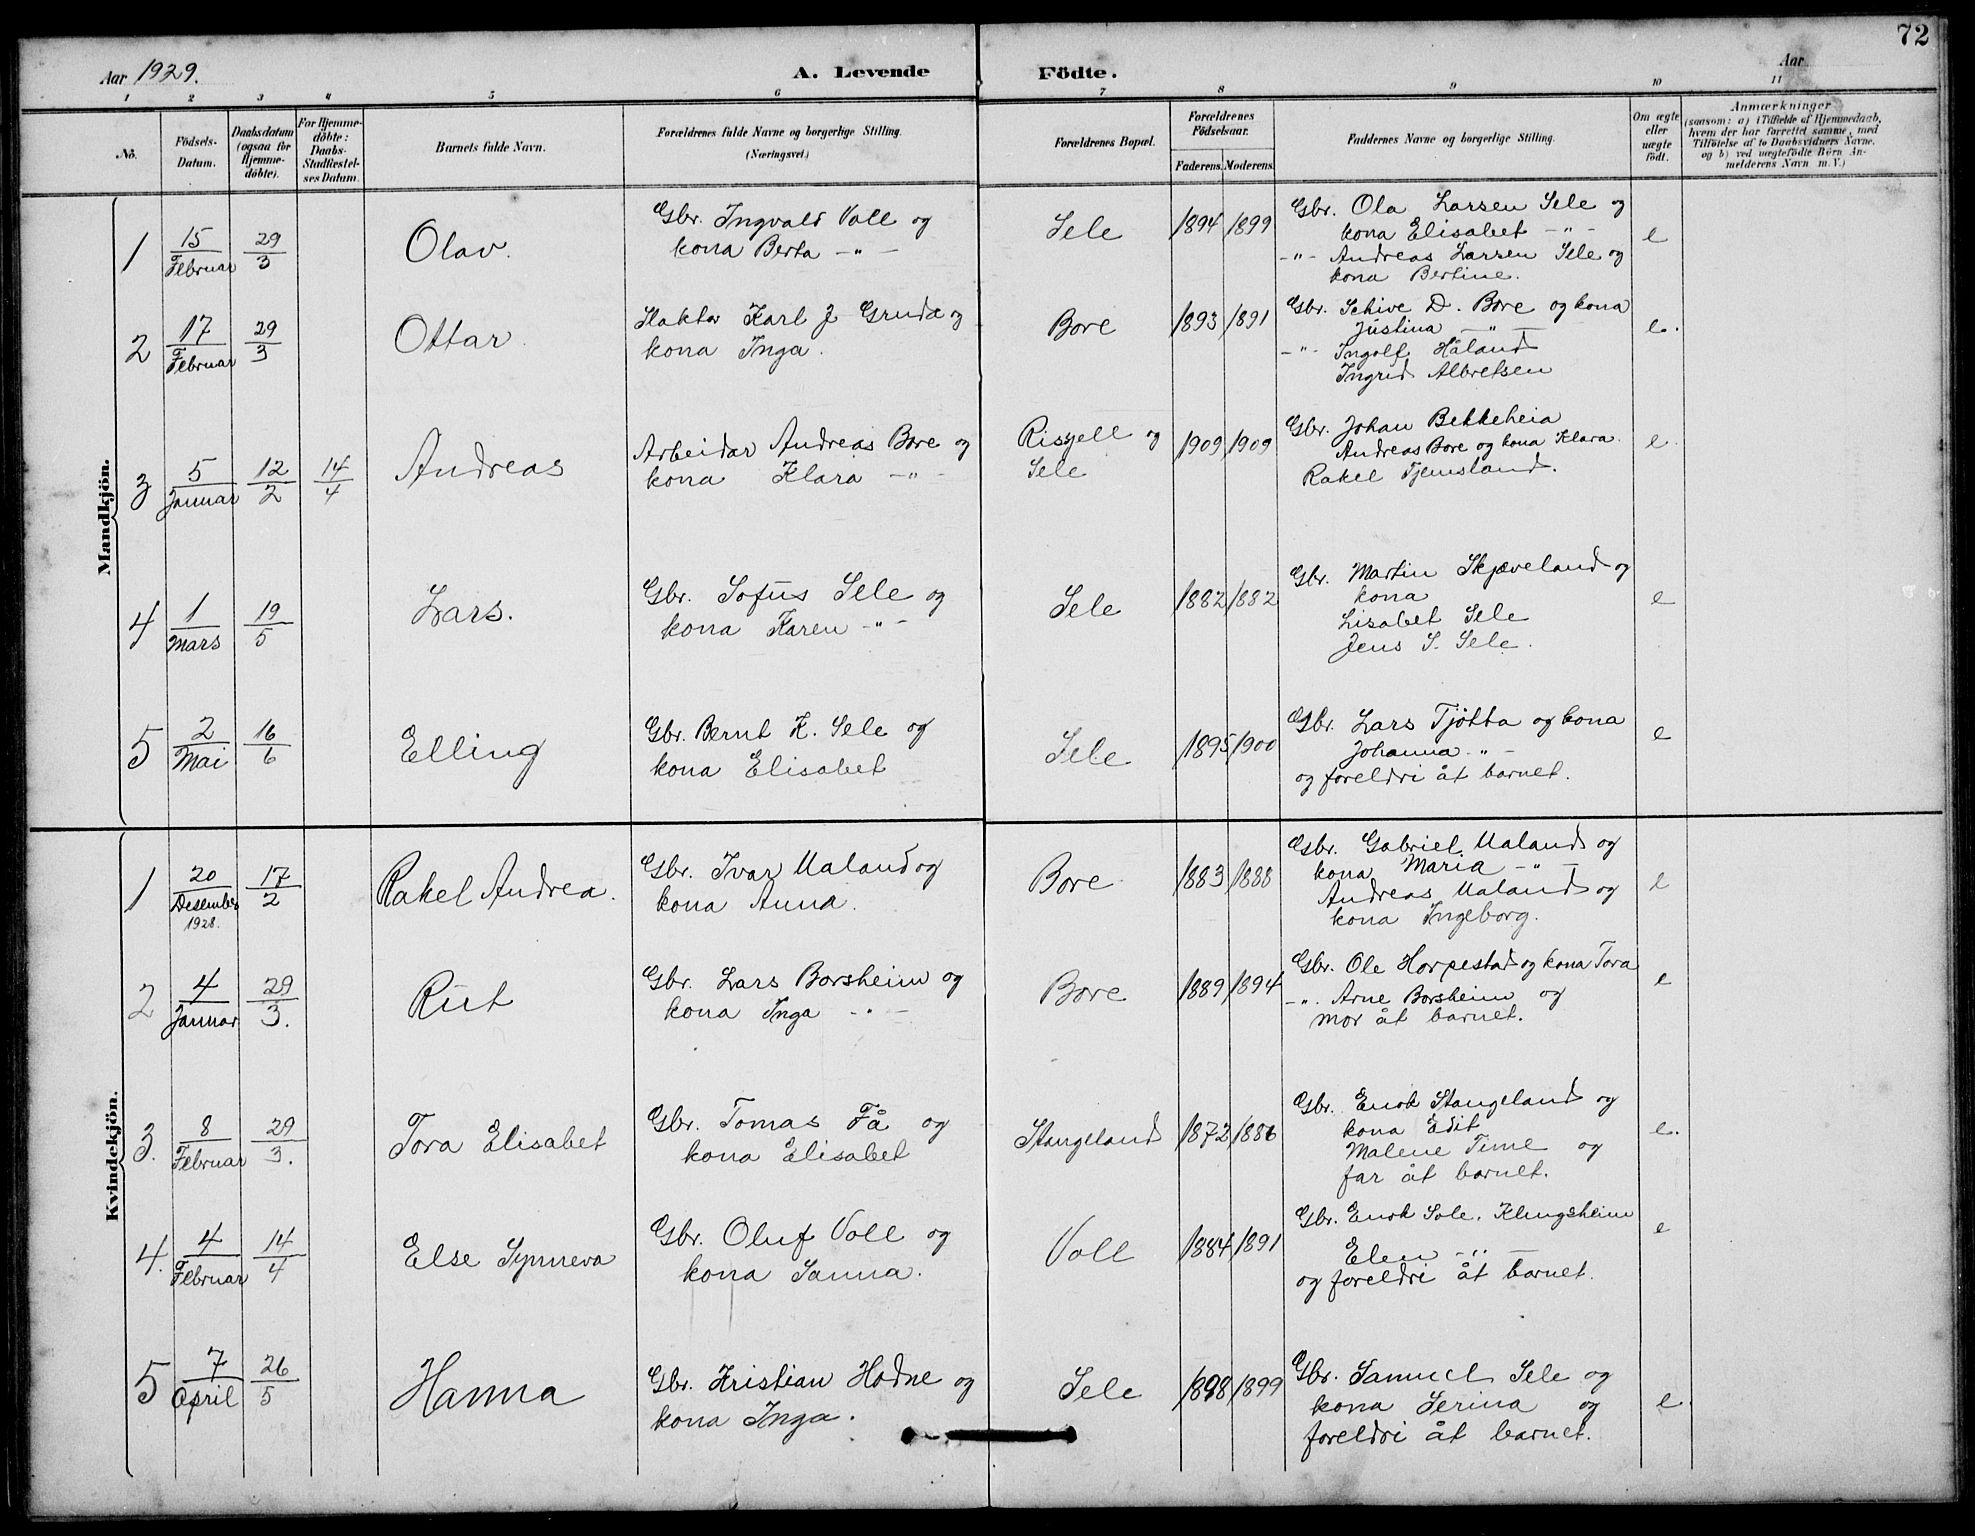 72
Aar 1929.
A. Levende Födte.
Aar
1 2 3 4 5 6 7 8 9 10 11
No.
Födsels-Datum.
Daabsdatum (ogsaa for Hjemme-döbte).
For Hjemme-döbte: Daabs-Stadfæstel-ses Datum.
Barnets fulde Navn.
Forældrenes fulde Navne og borgerlige Stilling.
(Næringsvei.)
Forældrenes Bopæl.
Forældrenes Födselsaar.
Faderens. Moderens.
Faddernes Navne og borgerlige Stilling.
Om ægte eller uægte födt.
Anmærkninger
(saasom: a) i Tilfælde af Hjemmedaab, hvem der har forrettet samme, med Tilföielse af to Daabsvidners Navne, og b) ved uægtefödte Börn Anmelderens Navn m. V.)
Mandkjön.
1 15 Februar 29/3 Olav. Gbr. Ingvald Voll og kona Berta -"- Sele 1894 1899 Gbr. Ola Larsen Sele og e
kona Elisabet -"-
-"- Andreas Larsen Sele og
kona Bertine.
2 17 Februar 29/3 Ottar. Slaktar Karl J Gruda og kona Inga. Bore 1893 1891 Gbr. Schive D. Bore og kona e.
Justina -"-
-"- Ingolf Håland
Ingrid Albretsen
3 5 Januar 12/2 14/4 Andreas Arbeidar Andreas Bore og kona Klara -"- og Sele 1909 1909 Gbr. Johan Bekkeheia e.
Andreas Bore og kona Klara.
Rakel Tjemsland.
4 1 Mars 19/5 Lars. Gbr. Sofus Sele og kona Karen -"- Sele 1882 1882 Gbr. Martin Skjæveland og e
kona
Lisabet Sele
Jens S. Sele.
5 2 Mai 16/6 Elling Gbr. Bernt K. Sele og kona Elisabet Sele 1895 1900 Gbr. Lars Tjötta og kona e
Johanna -"-
og foreldri åt barnet.
Kvindekjön.
1 20 Desember 1928. 17/2 Rakel Andrea. Gbr. Ivar Ualand og kona Anna. Bore 1883 1888 Gbr. Gabriel Ualand og e
kona Maria -"-
Andreas Ualand og
kona Ingeborg.
2 4 Januar 29/3. Rut Gbr. Lars Borsheim og kona Inga -"- Bore 1889 1894 Gbr. Ole Horpestad og kona Tora e
-"- Arne Borsheim og
mor åt barnet.
3. 8 Februar 29/3. Tora Elisabet Gbr. Tomas Få og kona Elisabet Stangeland 1872 1886 Gbr. Enok Stangeland og e.
kona Edit
Malene Time og
far åt barnet.
4. 4 Februar 14/4 Else Synneva Gbr. Oluf Voll og kona Sanna. Voll 1884 1891 Gbr. Enok Sole, Klungsheim e
Elen -"-
og foreldri åt barnet.
5 7 April 26/5 Hanna Gbr. Kristian Hodne og kona Inga. Sele 1898 1899 Gbr. Samuel Sele og e.
kona Serina og
foreldri åt barnet.